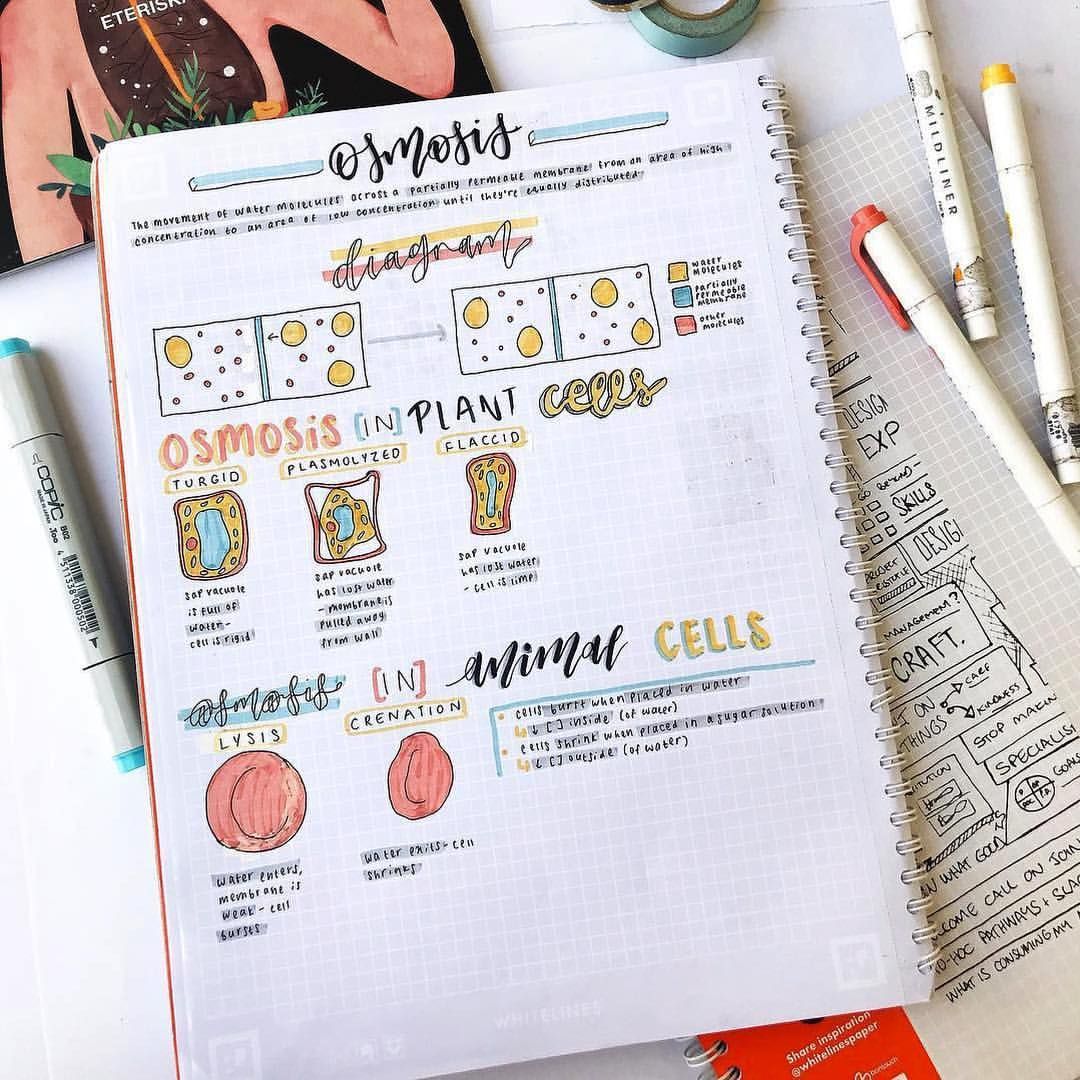 ETERISK
osmosis
The movement of water molecules across a partially permeable membrane from an area of high
concentration to an area of low concentration until they're equally distributed.
diagram
water
molecules
partially
permeable
membrane
other
molecules
OSMOSIS [IN] PLANT cells
TURGID
PLASMOLYZED
FLACCID
sap vacuole
is full of
water-
cell is rigid
sap vacuole
has lost water
- membrane is
pulled away
from wall
sap vacuole
has lost water
- cell is limp
osmosis [IN] animal CELLS
LYSIS
CRENATION
• cells burst when placed in water
↳ ↓ [] inside (of water)
• cells shrink when placed in a sugar solution
↳ ↓ [] outside (of water)
water enters,
membrane is
weak - cell
bursts
water exits - cell
shrinks
WHITELINES
COPIC
B02
4511338000502
MILDLINER
DESIGN
EXP
SKILLS
DESIGN
MANAGEMENT?
CRAFT.
CARE
KINDNESS
THINGS
STOP MAKIN
SPECIALIS
GOALS
WHAT GOOD
CALL ON JOHN
PATHWAYS + SLAC
WHAT IS CONSUMING MY
Share inspiration
@whitelinespaper